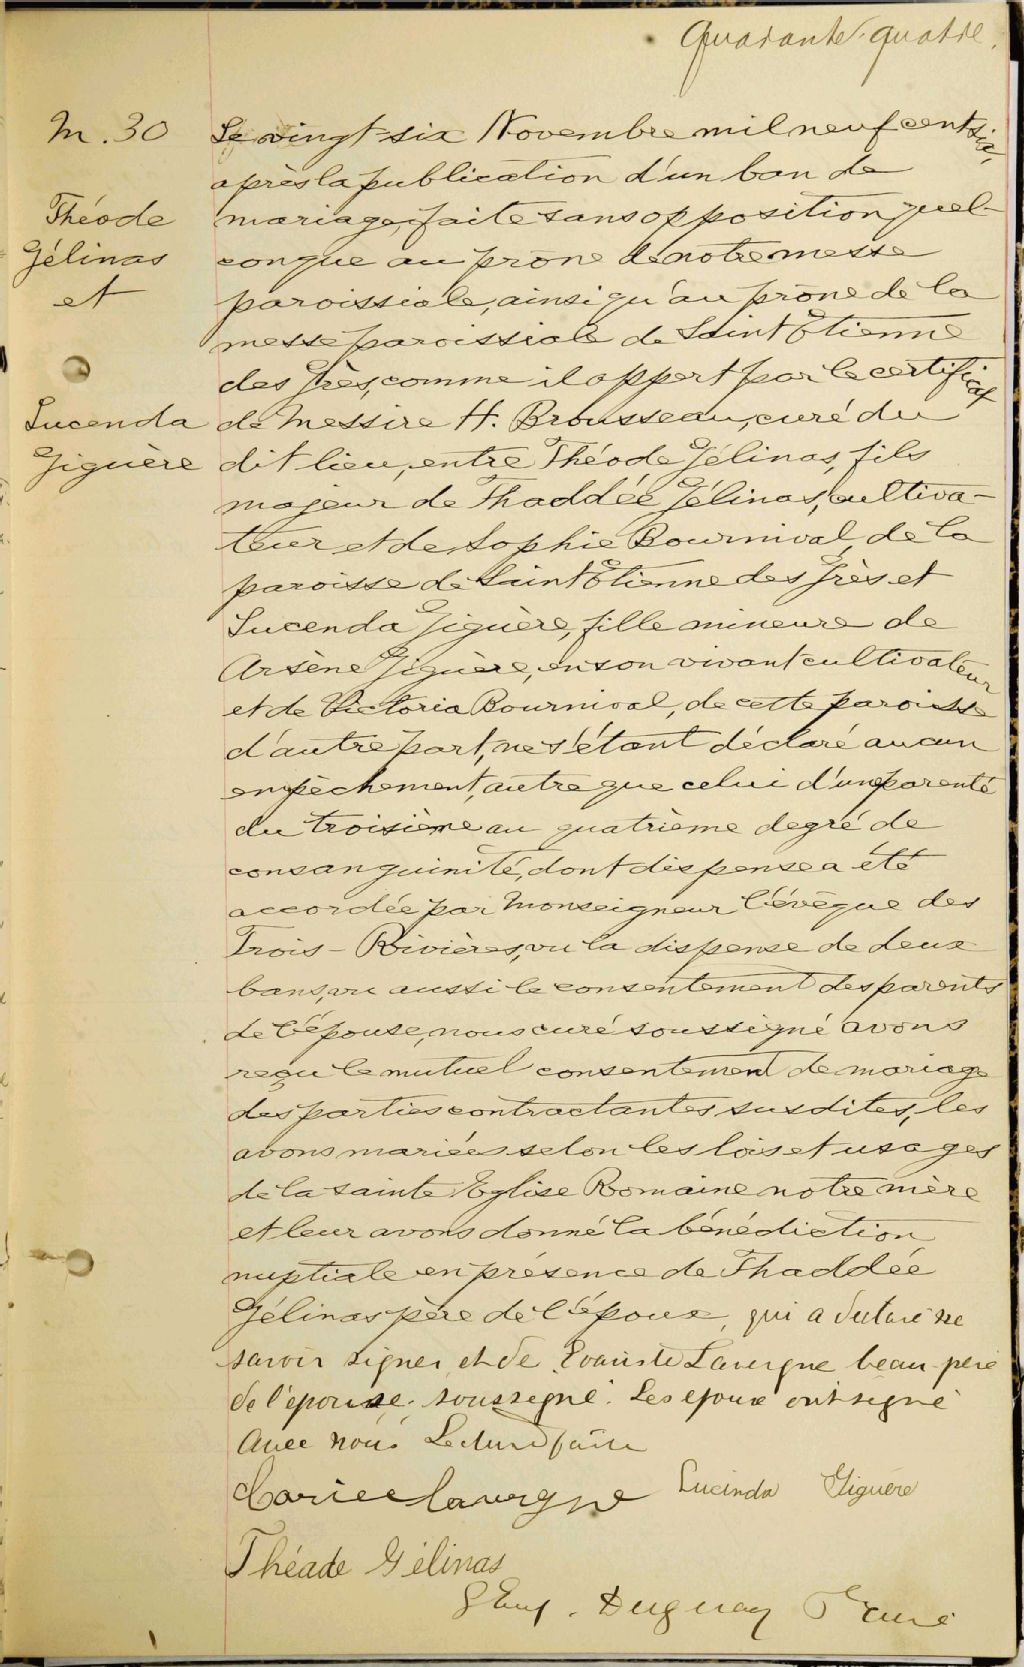 Quarante-quatre.
M. 30
Théode
Gélinas
et
Lucenda
Giguère
Le vingt-six Novembre mil neuf cent six,
après la publication d'un ban de
mariage, faite sans opposition quel-
conque au prône de notre messe
paroissiale, ainsi qu'au prône de la
messe paroissiale de Saint Etienne
des Grès, comme il appert par le certificat
de Messire H. Brousseau, curé du
dit lieu, entre Théode Gélinas, fils
majeur de Thaddée Gélinas, cultiva-
teur et de Sophie Bournival, de la
paroisse de Saint Etienne des Grès et
Lucenda Giguère, fille mineure de
Arsène Giguère, en son vivant cultivateur
et de Victoria Bournival, de cette paroisse
d'autre part, ne s'étant déclaré aucun
empêchement, autre que celui d'une parenté
du troisième au quatrième degré de
consanguinité, dont dispense a été
accordée par Monseigneur l'évêque des
Trois-Rivières, vu la dispense de deux
bans, vu aussi le consentement des parents
de l'épouse, nous curé soussigné avons
reçu le mutuel consentement de mariage
des parties contractantes susdites, les
avons mariées selon les lois et usages
de la sainte Eglise Romaine notre mère
et leur avons donné la bénédiction
nuptiale en présence de Thaddée
Gélinas père de l'époux, qui a déclaré ne
savoir signer et de Evariste Lavergne beau-père
de l'épouse, soussigné. Les époux ont signé
avec nous. Lecture faite
Lavergne Lucinda Giguère
Théade Gélinas
Duguay Ptre curé